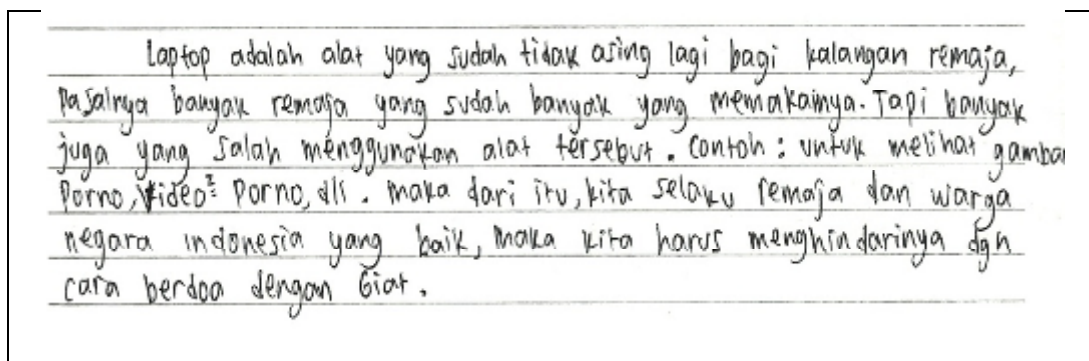 Laptop adalah alat yang sudah tidak asing lagi bagi kalangan remaja,
Pasalnya banyak remaja yang sudah banyak yang memakainya. Tapi banyak
juga yang salah menggunakan alat tersebut. Contoh : untuk melihat gambar
Porno, Video² Porno, dll. maka dari itu, kita selaku remaja dan warga
negara indonesia yang baik, maka kita harus menghindarinya dgn
cara berdoa dengan Giat.